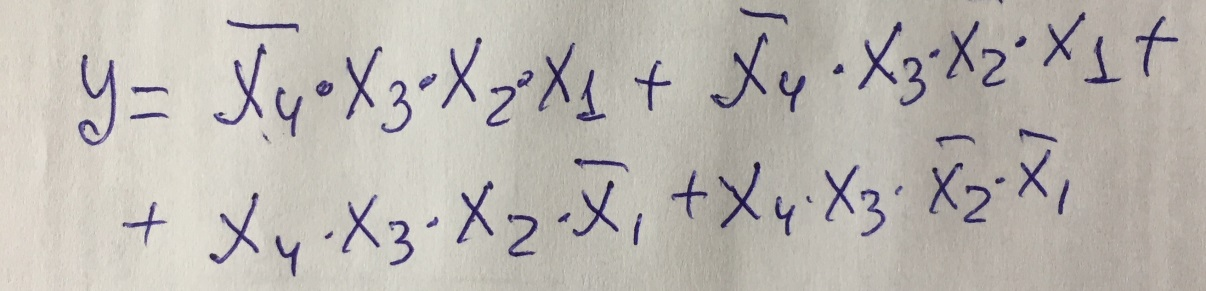 y = x̅₄·x₃·x₂·x₁ + x̅₄·x₃·x₂·x₁ +
+ x₄·x₃·x₂·x̅₁ + x₄·x₃·x̅₂·x̅₁